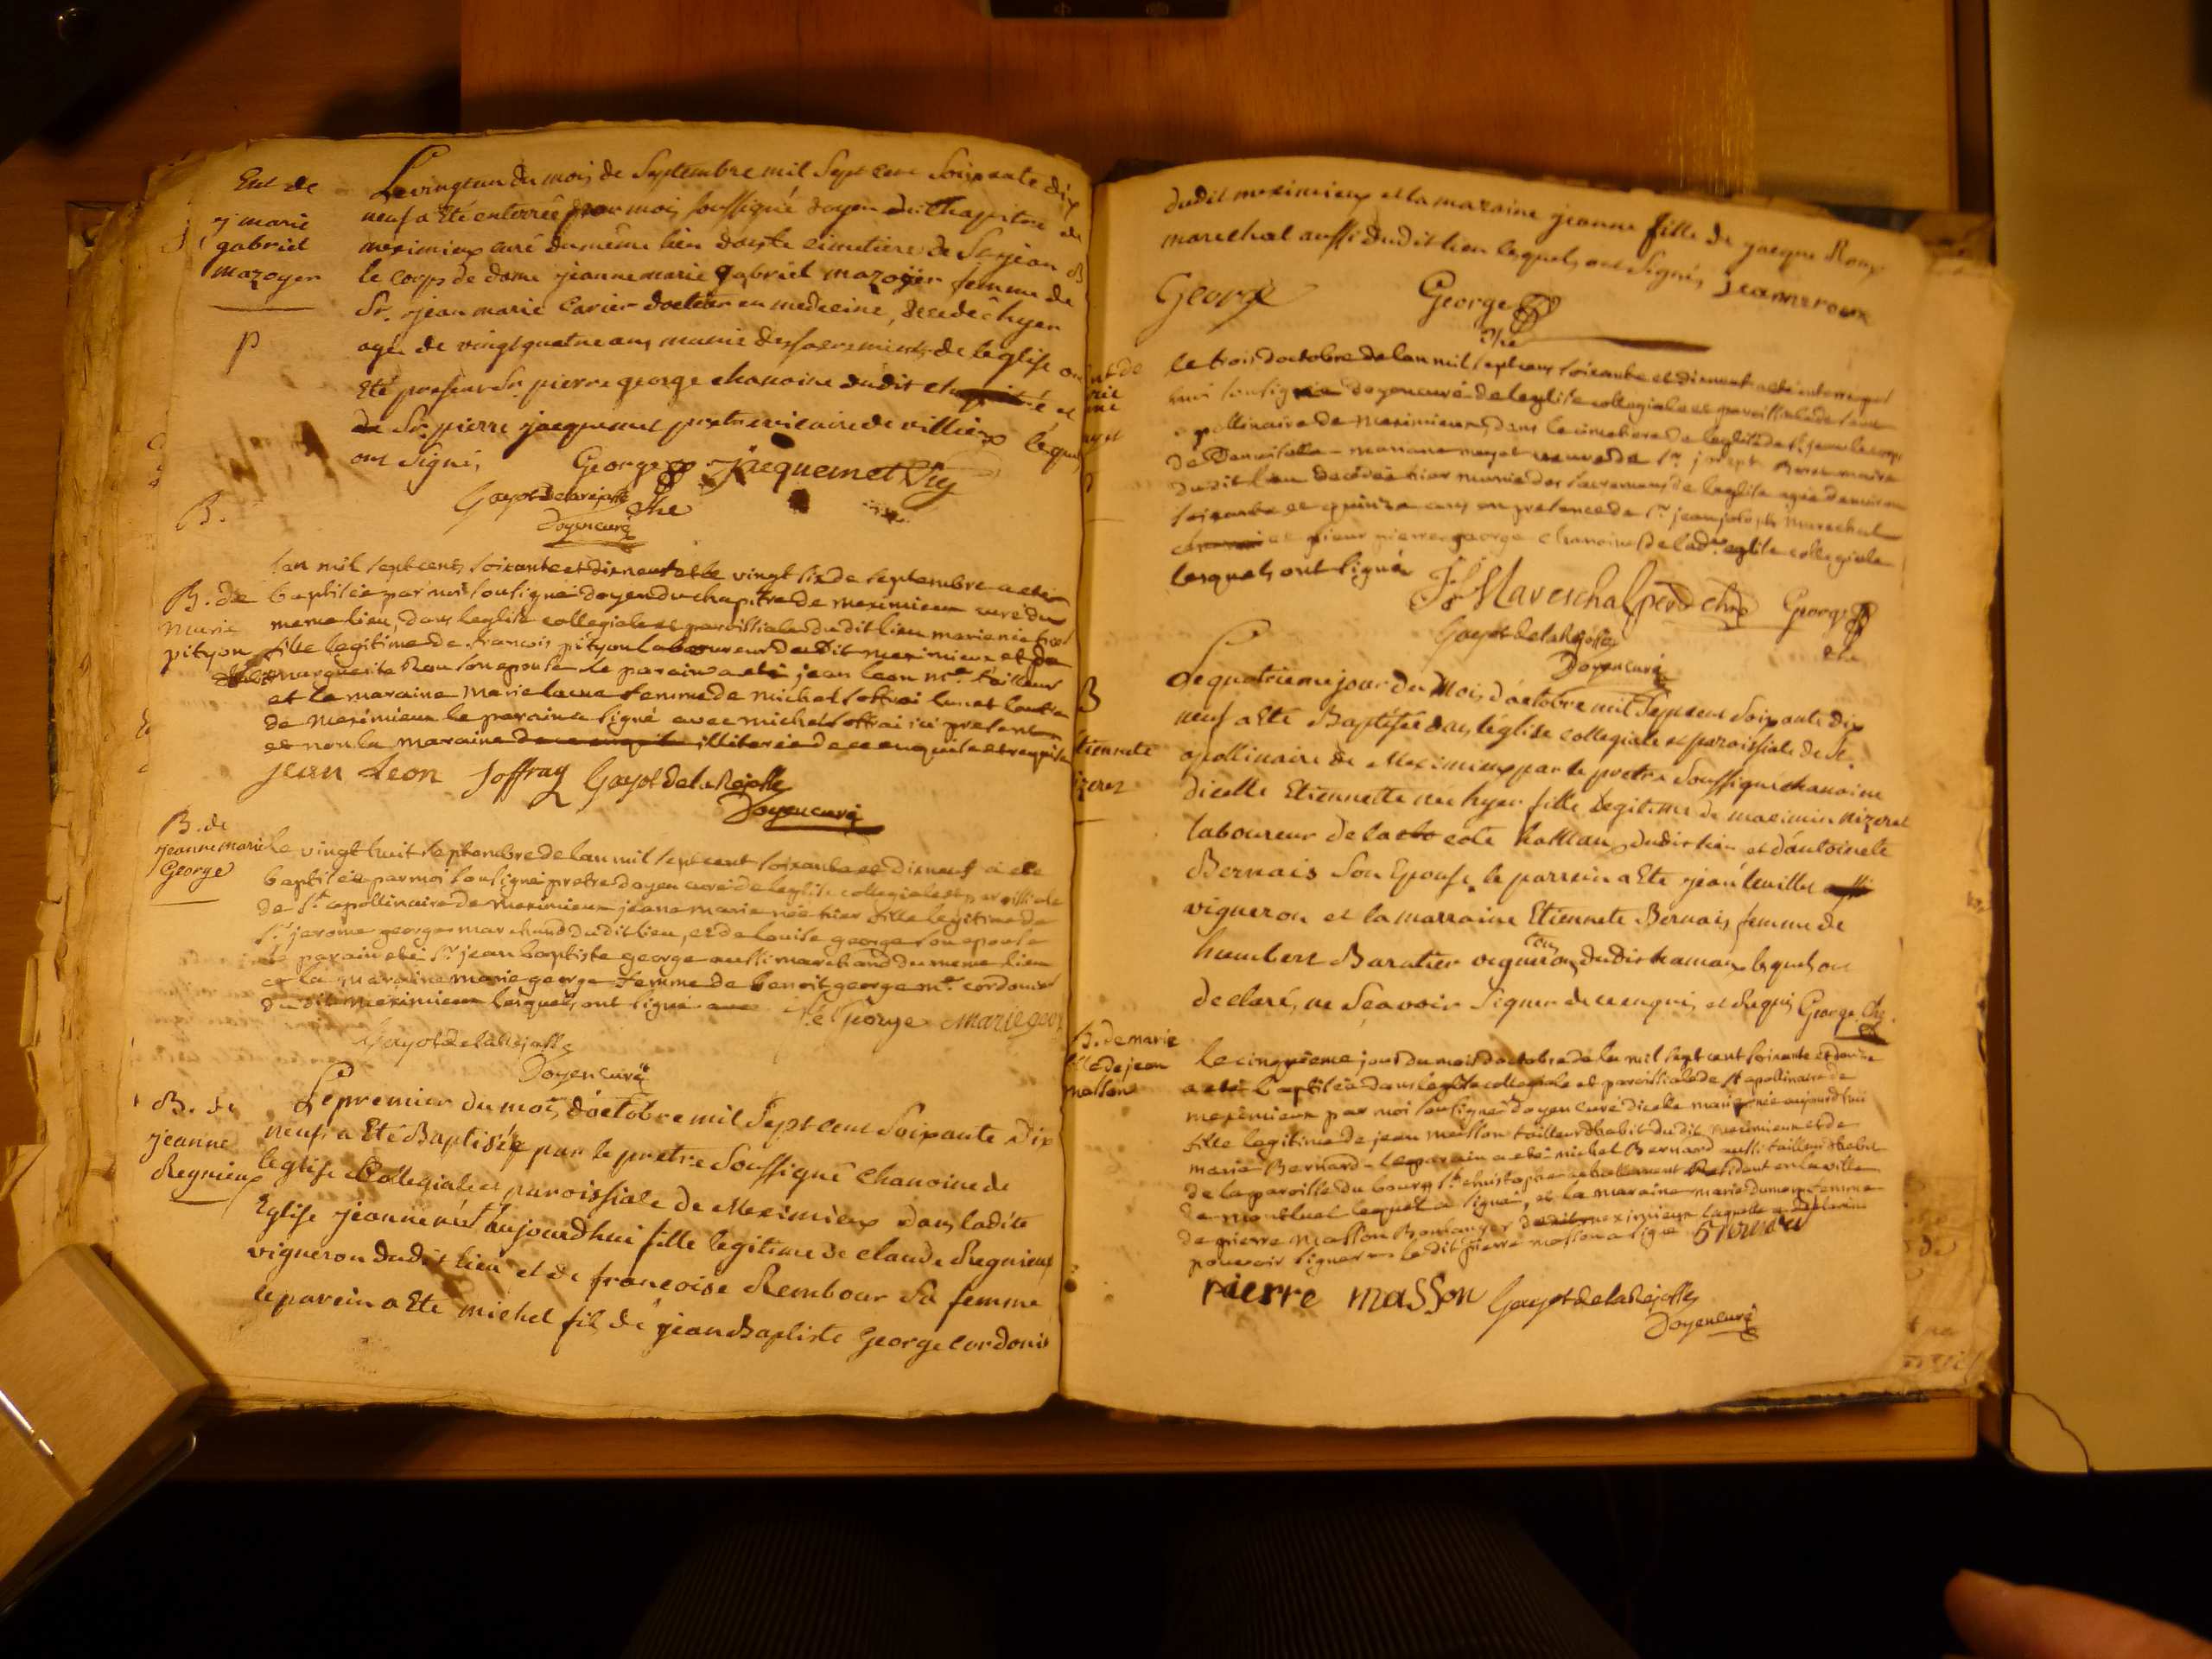 Ent de
j marie
gabriel
mazoyer
p
Le vingtun du mois de Septembre mil Sept cent Soixante dix
neuf a Eté enterrée par moi soussigné doyen du Chapitre de
meximieux curé du même lieu dans le cimetiere de St jean B
le corps de dame jeanne marie gabriel mazoyer femme de
Sr. jean marie Carier docteur en medecine, decedé hyer
agée de vingt quatre ans munie des sacrements de leglise ont
Eté presens Sr. pierre george chanoine dudit et
de Sr. pierre jacquemet pretre vicaire de villieux lequel
ont signé,
George che jacquemet
Gayot delarejasse
Doyen curé
B.
B. de
marie
pityon
lan mil sept cents soixante et dix neuf et le vingt six de septembre a eté
baptisée par moi sousigné doyen du chapitre de meximieux curé du
meme lieu, dans leglise collegiale et paroissiale du dit lieu marie née hier
fille legitime de francois pityon laboureur du dit meximieux et de
marguerite son epouse le parain a eté jean leon me. tailleur
et la maraine marie femme de michel
de meximieux le parain a signé avec michel soffrai ici present
et non la maraine illiterée de ce enquise et requise
jean Leon Soffray Gayot delaRejasse
Doyen curé
B. de
jeanne marie
George
le vingt huit septembre de lan mil sept cent soixante et dix neuf a eté
baptisée par moi sousigné pretre doyen curé de leglise collegiale et paroissiale
de St. apollinaire de meximieux jeane marie née hier fille legitime de
Sr. jerome george marchand dudit lieu, et de louise george son epouse
le parain eté Sr. jean baptiste george aussi marchand du meme lieu
et la maraine marie george femme de benoit george me. cordonier
du dit meximieux lesquels ont signé
George marie geor
Gayot de laRejasse
Doyen curé
B. de
jeanne
Regnieux
Le premier du mois d'octobre mil Sept cent Soixante Dix
neuf, a Eté Baptisée par le pretre Soussigné Chanoine de
leglise Collegiale et paroissiale de Meximieux dans ladite
Eglise jeanne née aujourdhui fille legitime de claude Regnieux
vigneron dudit lieu et de francoise Rembour sa femme
le parein a Eté michel fils de jean Baptiste George cordonié
dudit meximieux et la maraine jeanne fille de jacque Roux
marechal aussi dudit lieu lesquels ont signés, jeanne roux
George George
che
le trois doctobre de lan mil sept cens soixante et dix neuf a eté enterrée par
moi sousigné doyen curé de leglise collegiale et paroissiale de saint
apollinaire de meximieux, dans le cimetiere de leglise de St. jean le corps
de Demoiselle mariane mayet veuve de Sr. joseph
dudit lieu decedée hier munie des sacremens de leglise agée denviron
soixante et quinze ans en presence de Sr. jean joseph marechal
et sieur pierre george chanoines de lad. eglise collegiale
lesquels ont signé
Mareschal che George
che
Gayot de laRejasse
Doyen curé
B
tiennete
izeret
Le quatrieme jour du Mois d'octobre mil Sept cent Soixante dix
neuf a Eté Baptisée dans léglise collegiale et paroissiale de St.
apollinaire de Meximieux par le pretre Soussigné chanoine
dicelle Etiennette née hyer fille legitime de maximin nizeret
laboureur de la cote hamau dudit lieu et dantoinete
Bernais Son Epouse, le parrein a Eté jean
vigneron et la marraine Etiennete Bernais femme de
humbert Baratier vigneron tous dudit hamau lequels on
declaré, ne Scavoir Signer de ce enquis et Requis George Che.
B. de marie
fille de jean
masson
le cinquieme jour du mois doctobre de lan mil sept cent soixante et dix neuf
a eté baptisée dans leglise collegiale et paroissiale de St apollinaire de
meximieux par moi sousigné doyen curé dicelle marie née aujourdhui
fille legitime de jean masson tailleur dhabit du dit meximieux et de
marie Bernard le parain a eté michel Bernard aussi tailleur dhabit
de la paroisse du bourg St. christophe actuellement Residant en la ville
de montluel lequel a signé, et la maraine marie dumon femme
de pierre masson Boulanger dudit meximieux laquelle a declaré ne
pouvoir signer le dit pierre masson a signé
Pierre masson Gayot de laRejasse
Doyen curé